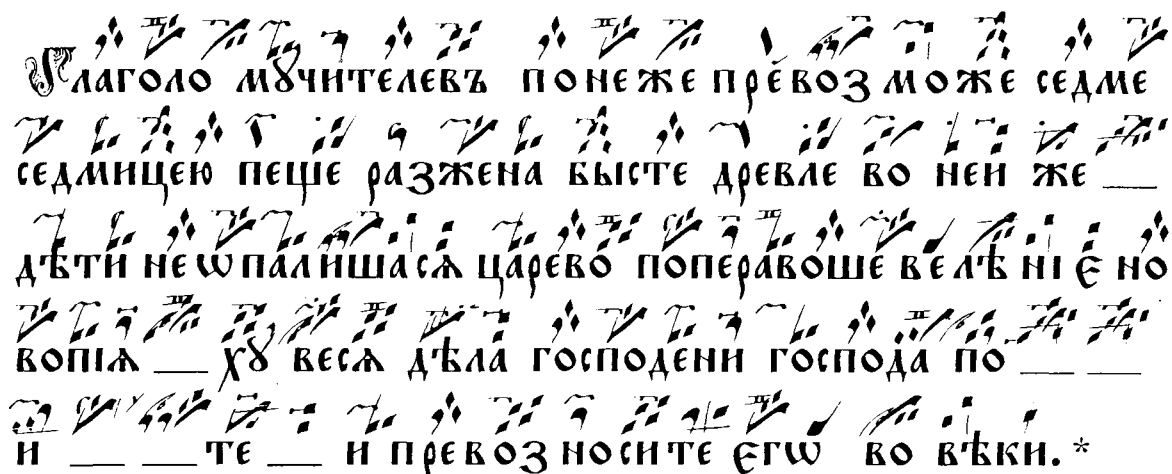 Глаголо мꙋчителевъ понеже пре́возможе седме
седмицею пеще разжена бысте древле во неи же __
дѣти неѡпалишасѧ царево поперавоше велѣніе но
вопіѧ __ хꙋ весѧ дѣла господени господа по __ __
и __ __ те __ и превозносите єгѡ во вѣки. *